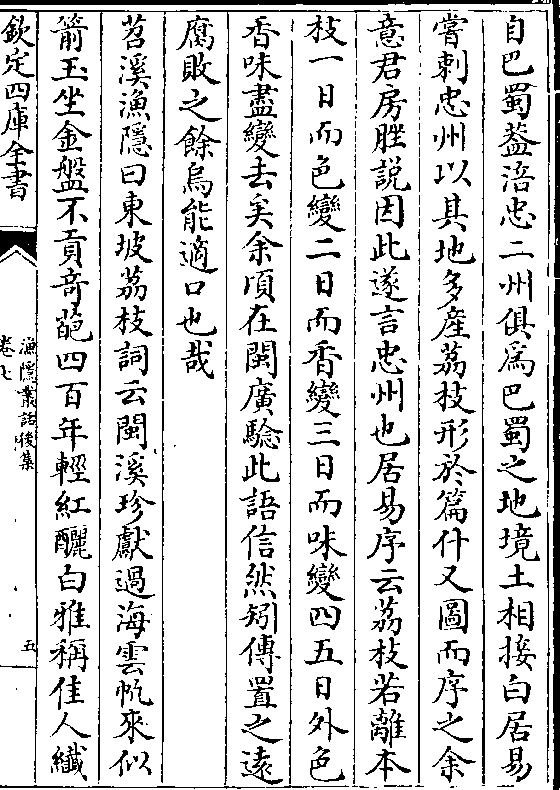 自巴蜀葢涪忠二州俱爲巴蜀之地境土相接白居易
嘗刺忠州以其地多産荔枝形於篇什又圖而序之余
意君房脞説因此遂言忠州也居易序云荔枝若離本
枝一日而色變二日而香變三日而味變四五日外色
香味盡變去矣余頃在閩廣驗此語信然矧傳置之逺
腐敗之餘烏能適口也哉
苕溪漁隱曰東坡荔枝詞云閩溪珍獻過海雲帆來似
箭玉坐金盤不貢竒葩四百年輕紅釅白雅稱佳人纎
欽定四庫全書
漁隱叢話後集
卷七
五